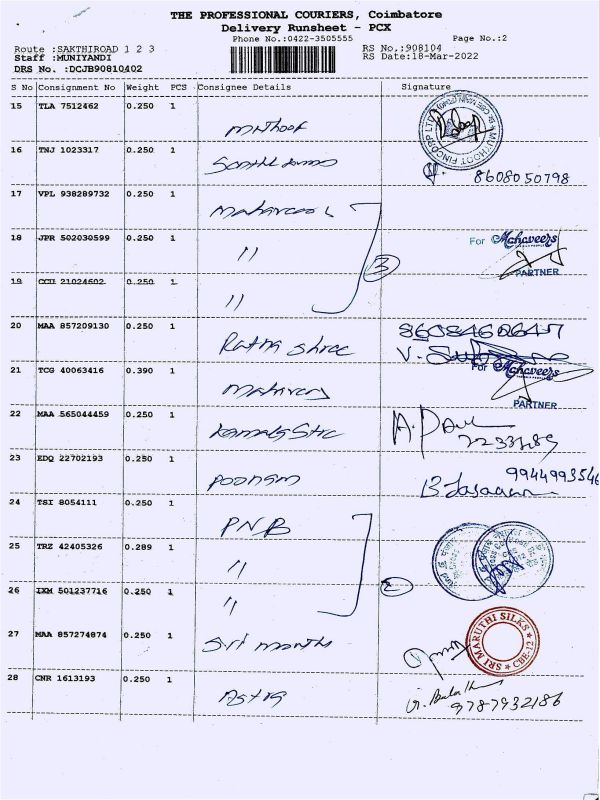 THE PROFESSIONAL COURIERS, Coimbatore
Delivery Runsheet - PCX
Phone No.:0422-3505555 Page No.:2
Route :SAKTHIROAD 1 2 3 RS No.:908104
Staff :MUNIYANDI RS Date:18-Mar-2022
DRS No. :DCJB90810402
S No Consignment No Weight PCS Consignee Details Signature
15 TLA 7512462 0.250 1
Muthoot
MUTHOOT FINCORP LTD
16 TNJ 1023317 0.250 1
8608050798
17 VPL 938289732 0.250 1
18 JPR 502030599 0.250 1
" For Mahaveers
3
PARTNER
19 CCU 21024602 0.250 1
"
20 MAA 857209130 0.250 1
Ratna Shree
21 TCG 40063416 0.390 1
For Mahaveers
PARTNER
22 MAA 565044459 0.250 1
A. Paul
23 EDQ 22702193 0.250 1
Poonam 9944993546
24 TSI 8054111 0.250 1
PNB
25 TRZ 42405326 0.289 1
"
26 IXM 501237716 0.250 1
" 2
27 MAA 857274874 0.250 1
Sri
SRI MARUTHI SILKS CBE-12
28 CNR 1613193 0.250 1
9787932186